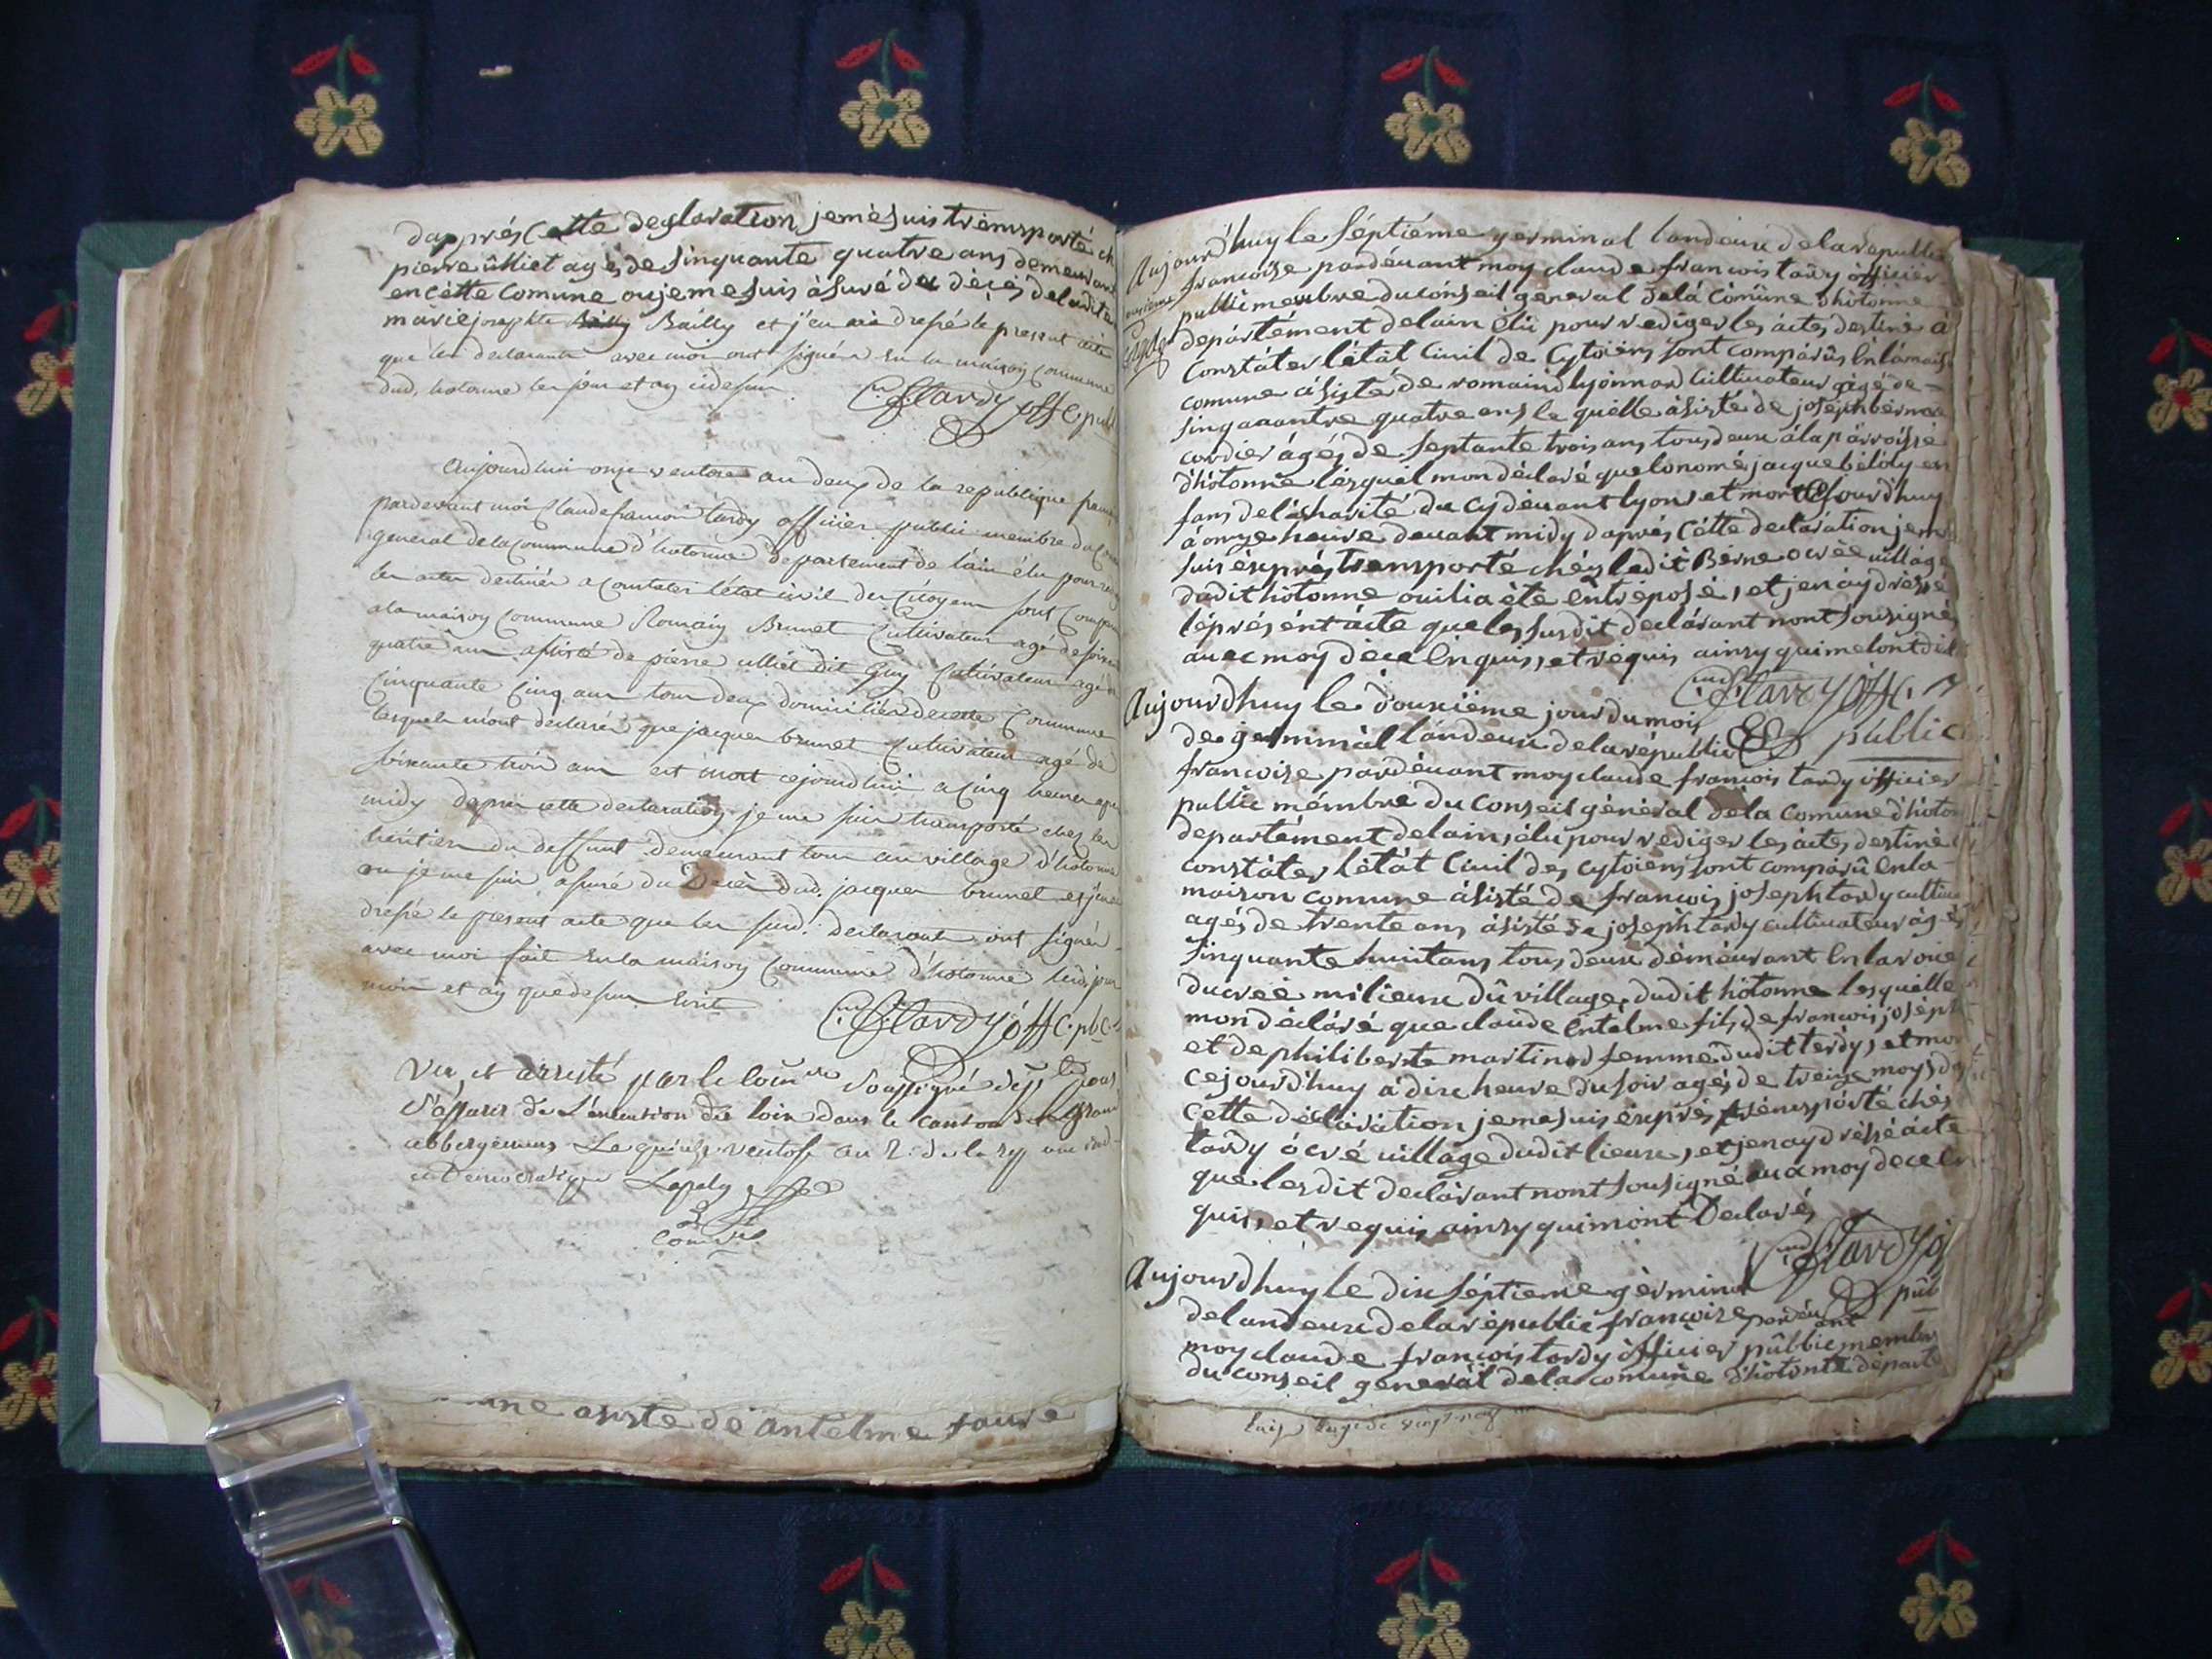 dapprés Cette desclaration, jemésuis trémsporté ch
pierre ûlliet agés de sinquante quatre ans demeurant
encétte Comune ou jemesuis àsuré du décés deladite
marie josephte Bailly et j'en ai dressé le present acte
que les declarants avec moi ont signés En la maison commune
dud. hotonne les jour et an cidessus
C. F. tardy off. c. publ
Aujourdhui onze ventose an deux de la republique franc
pardevant moi Claude francoi tardy officier public membre du con
general de la commune d'hotonne departement de l'ain élu pour red
les actes destinés a constater l'état civil des Citoyens sont Comparu
a la maison Commune Romain Brunet Cultivateur agé de soixante
quatre ans assisté de pierre ulliet dit Guy Cultivateur agé de
Cinquante Cinq ans tous deux domiciliés de cette Commune
lesquels m'ont declarés que jacques brunet Cultivateur agé de
soixante trois ans est mort cejourdhui a Cinq heures apres
midy depuis cette declaration je me suis transporté chez les
héritiers du deffunt demeurant tous au village d'hotonne
ou je me suis assuré du Decès dud. jacques brunet et j'en ai
dressé le present acte que les susd. declarants ont signés
avec moi fait En la maison Commune d'hotonne lesd. jour
mois et an que dessus Ecrit
C. F. tardy off. c. pbc.
Vu, et arresté par le Comre soussigné
S'assurer de L'execution des loix dans le canton du grand
abbergement Le quinze ventose an 2. de la rep une ind
et Democratique
Aujourd'huy le séptiéme germinal landeux delarepublic
francoise pardévant moy claude francois tardy officier
public membre duconseil general dela comûne d'hotonne
departément delain élû pour rediger les actes destiné à
Constater létat Civil de Cytoiens sont comparûs En lamaison
comune asisté de romaind lyonnard Cultivateur agé de
singuantre quatre ans le quélle àsisté de joséph bérnard
cordier ágés de septante trois ans tous deux àla parroisse
d'hôtonne lésquél mon déclaré quelonomé jacque béloly en
fans delásharité du cy devant lyon, et mort Cejourd'huy
à onze heure devant midy daprés Cétte declaration jeme
suis éxprés tremsporté chéz ledit Berne ocrée village
dudit hôtonne ouilia été entréposé, et jen áy dréssé
lé présént ácte que les susdit declárant nont sousigné
avec moy déce Enquis, et réquis ainsy quimelont dit
C. F. tardy off. c.
public
Aujourdhuy le douxiéme jour du mois
de germinàl landeux dela républic
francoise pardévant moy claude francois tardy officier
public mémbre du Conseil général dela comune d'hoton
departément delain, élû pour rediger les áctes destiné
constater létát Civil des cytoiens sont comparû enla
maison comune àsisté de francois joseph tardy cultiva
agés de trente ans àsisté de joseph tardy cultivateur ágés
singuante huit ans tous deux démeurant en lavoie
ducrée milieux dû village, dudit hôtonne lesquélle
mon décláré que claude Entélme fils de francois joséph
et de philiberte martinod femme dudit tardy, et mor
cejourd'huy à dixe heure du soir agés de treize moys da
Cette déclaration jemesuis éxprés trémsporté chés
tardy ócré village dudit lieux, et jen ay dréssé ácte
que lesdit declárant nont sousigné avec moy dece En
quis, et requis ainsy quimont Declarés
C. F. tardy
pub
Aujourdhuy le dix séptieme gérminal
delandeux dela républic francoise pardévant
moy claude francois tardy officier public membre
du conseil general dela comune d'hôtonne départe
ne asiste de antelme favre